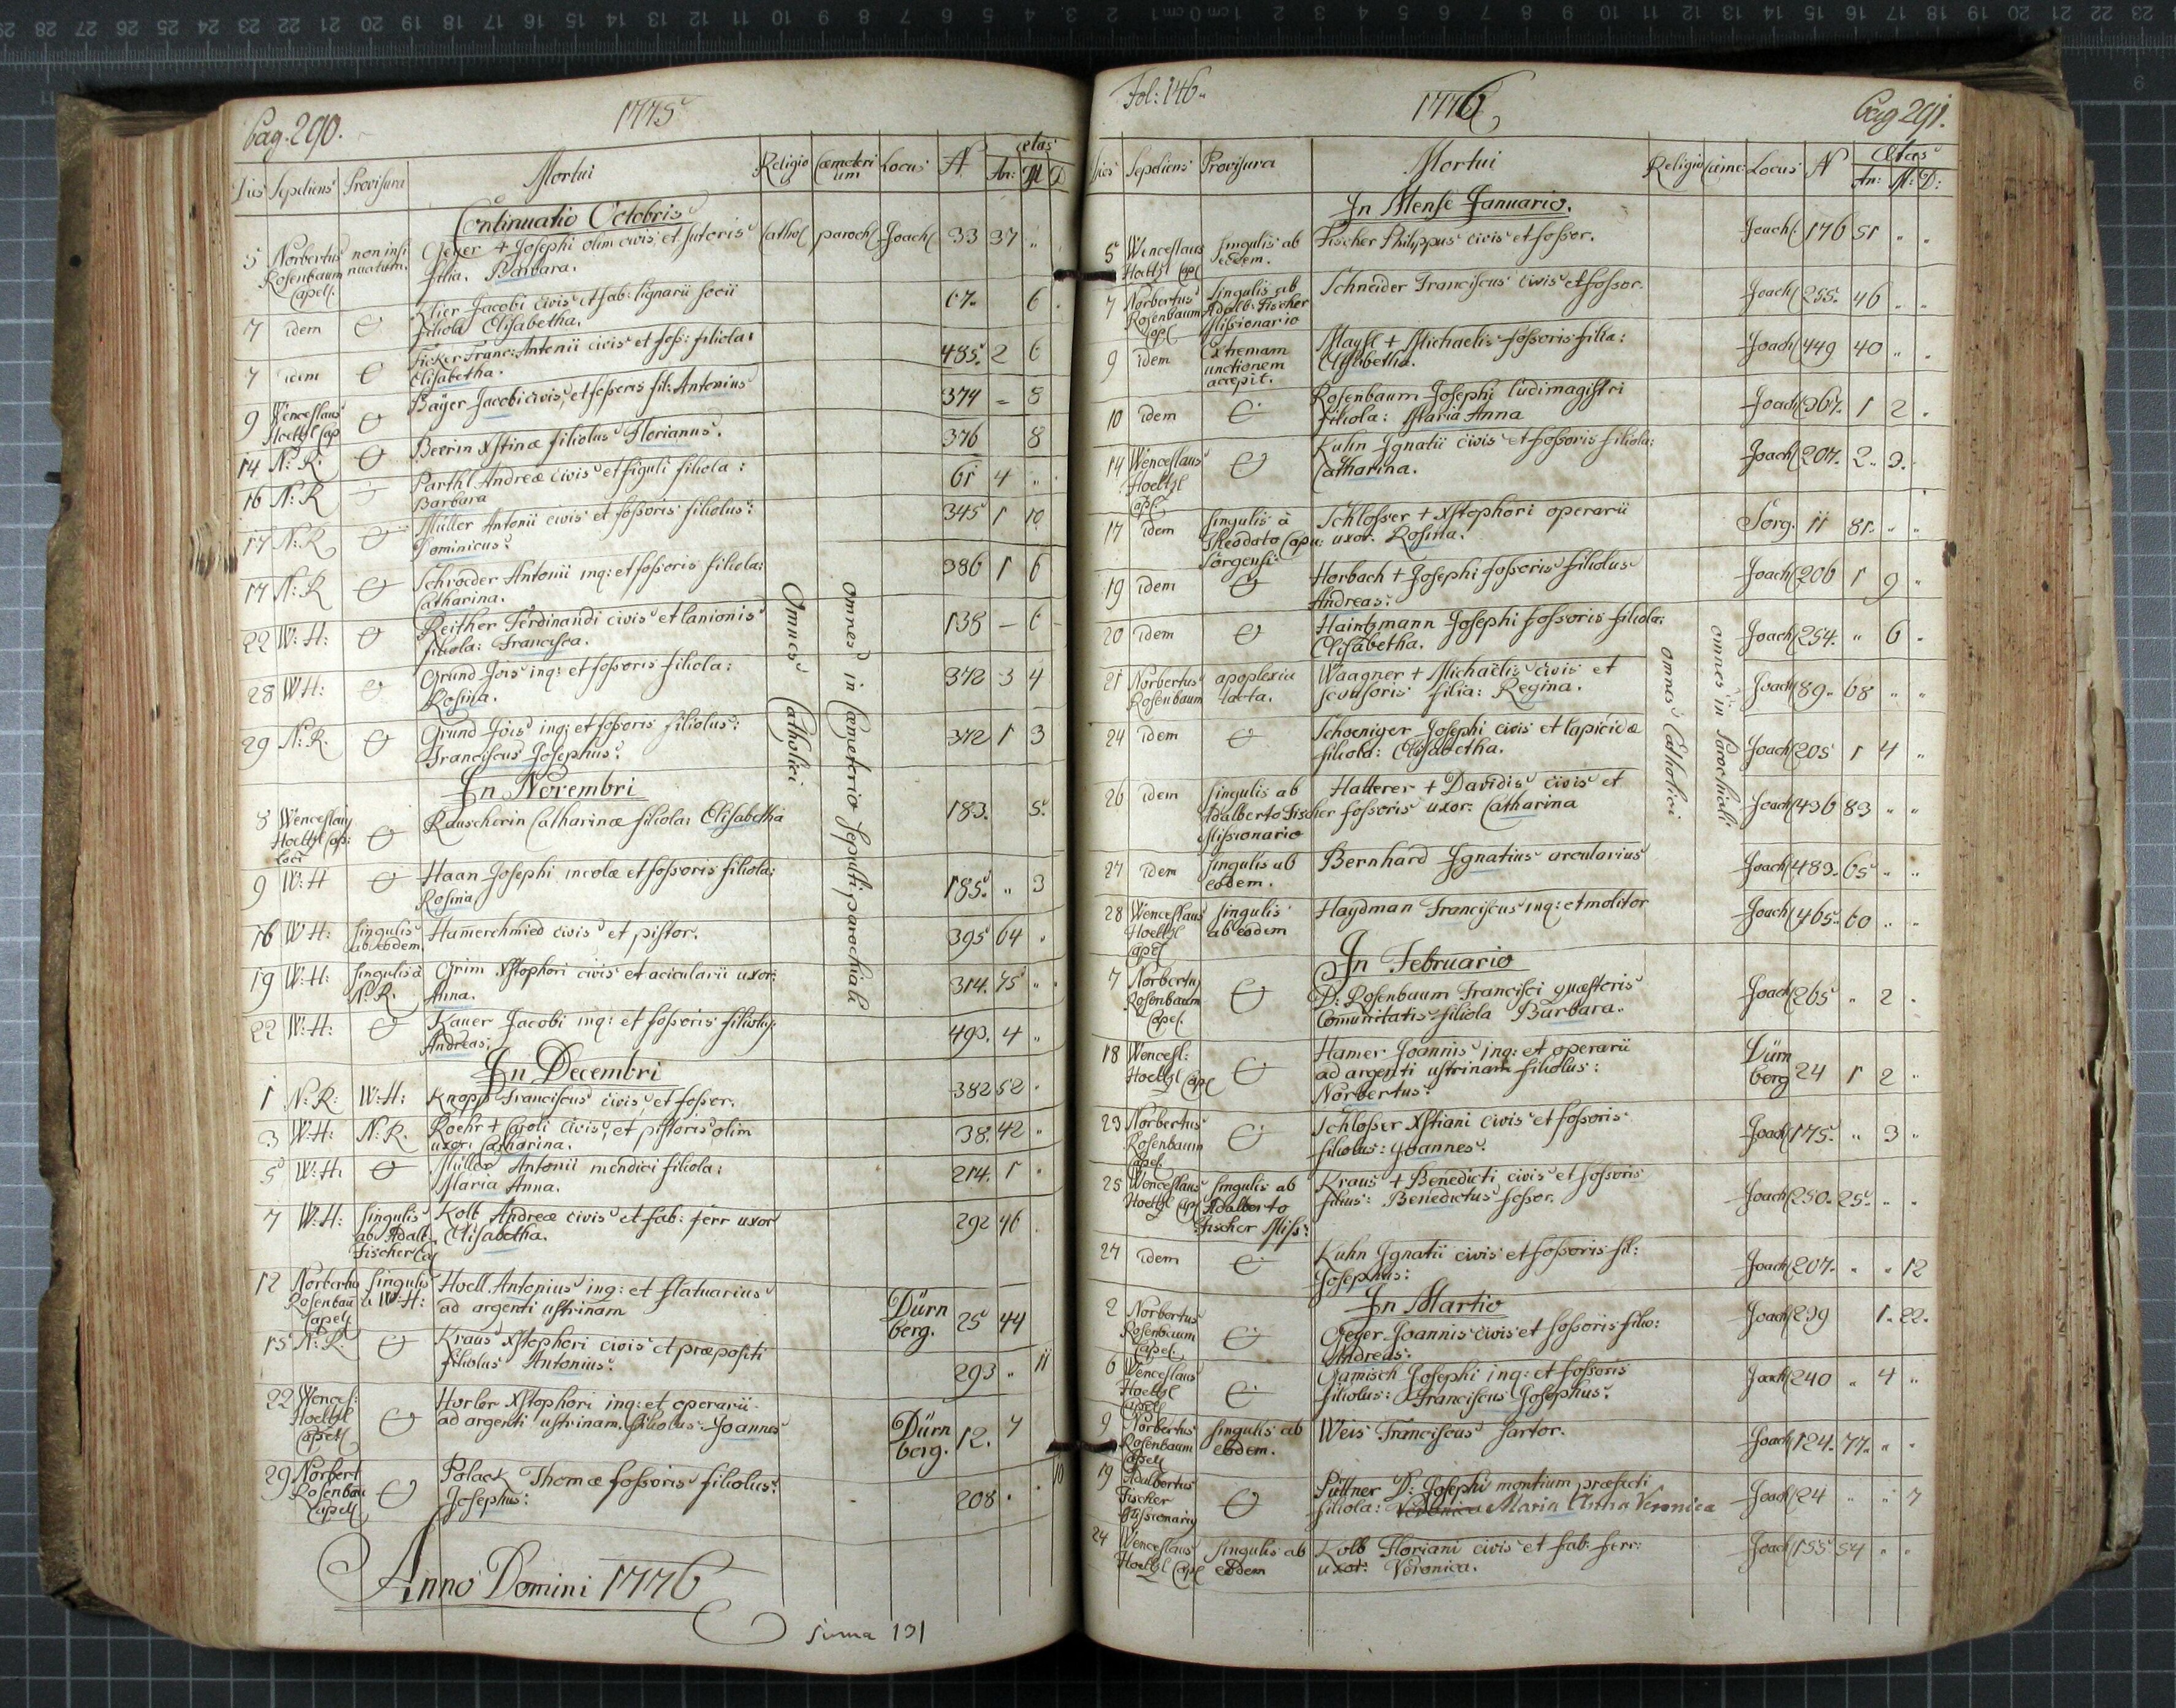 Pag. 290.
1775
Dies Sepeliens Provisura Mortui Religio Cæmeterium Locus N. ætas An: M D
Continuatio Octobris
5 Norbertus non insi Geyer + Josephi olim civis et sutoris Cathol paroch Joach 33 37 "
Rosenbaum nuatum. filia. Barbara.
Capell.
7 idem Klier Jacobi civis et fab: lignarii socii 67. 6
filiola Elisabetha.
7 idem Ficker Franc: Antonii civis et foss: filiola: 485. 2 6
Elisabetha.
9 Wenceslaus Baÿer Jacobi civis, et fossoris fil: Antonius 374 - 8
Hoeltzl Cap
14 N: R: Beerin Xstinæ filiolus Florianus. 376 8
16 N: R Parthl Andreæ civis et figuli filiola: 61 4 "
Barbara
17 N: R Müller Antonii civis et fossoris filiolus: 345 1 10
Dominicus:
17 N: R Schroeder Antonii inq: et fossoris filiola: 386 1 6
Catharina.
22 W: H: Reither Ferdinandi civis et lanionis 138 - 6
filiola: Francisca.
28 W H: Grund Jois inq: et fossoris filiola: 372 3 4
Rosina.
29 N: R. Grund Jois inq: et fossoris filiolus: 372 1 3
Franciscus Josephus:
Omnes Catholici
omnes in Cæmeterio sepulti parochiali
In Novembri
8 Wenceslaus Rauscherin Catharinæ filiola: Elisabetha 183. 5.
Hoeltzl Cap:
loci
9 W: H Haan Josephi incolæ et fossoris filiola: 185. " 3
Rosina
16 W H: singulis Hamerchmied civis et pistor. 395 64 "
ab eodem
19 W: H: singulis à Grim Xstophori civis et acicularii uxor: 314. 75 "
N: R. Anna.
22 W: H: Kauer Jacobi inq: et fossoris filiolus 493. 4 "
Andreas:
In Decembri
1 N: R: W: H: Knopp Franciscus civis et fossor. 382 52
3 W: H: N: R. Roehr + Caroli civis, et pistoris olim 38. 42 "
uxor: Catharina.
5 W: H: Müller Antonii mendici filiola: 214. 1
Maria Anna.
7 W: H: singulis Kolb Andreæ civis et fab: ferr uxor 292 46
ab Adalb. Elisabetha.
Fischer Cap
12 Norbertus singulis Hoell Antonius inq: et flatuarius Dürn 25 44
Rosenbau à W: H: ad argenti ustrinam berg.
Capell
15 N: R. Kraus Xstophori civis et præpositi 293 " 11
filiolus Antonius:
22 Wences: Horler Xstophori inq: et operarii Dürn 12. 7
Hoeltzl ad argenti ustrinam. filiolus: Joannes berg.
Capell
29 Norbert Polack Thomæ fossoris filiolus: 208 10
Rosenbau Josephus:
Capell
Anno Domini 1776
suma 131
Fol: 146.
1776
Pag 291.
Dies Sepeliens Provisura Mortui Religio Cæme: Locus N Ætas An: M: D:
In Mense Januario.
5 Wenceslaus singulis ab Fischer Philippus civis et fossor. Joach 176 51 " "
Hoeltzl Cap eodem.
7 Norbertus singulis ab Schneider Franciscus civis et fossor. Joach 255. 46 " "
Rosenbaum Adalb: Fischer
Cap Missionario
9 idem Extremam Maÿfl + Michaelis fossoris filia: Joach 449 40 "
unctionem Elisabetha.
accepit.
10 idem Rosenbaum Josephi ludimagistri Joach 367. 1 2
filiola: Maria Anna
14 Wenceslaus Kuhn Ignatii civis et fossoris filiola: Joach 207. 2 3.
Hoeltzl Catharina.
Cap.
17 idem singulis à Schlosser + Xstophori operarii Sorg. 11 81. " "
Theodato Capu: uxor. Rosina.
Sorgensi
19 idem Horbach + Josephi fossoris filiolus Joach 206 1 9 "
Andreas:
20 idem Haintzmann Josephi fossoris filiola: Joach 254. " 6 "
Elisabetha.
21 Norbertus apoplexia Waagner + Michaëlis civis et Joach 89. 68 " "
Rosenbaum tacta. filia: Regina.
24 idem Schoeniger Josephi civis et lapicidæ Joach 205 1 4 "
filiola: Elisabetha.
26 idem singulis ab Hallerer + Davidis civis et Joach 436 83 " "
Adalberto Fischer fossoris uxor: Catharina
Missionario
omnes Catholici
omnes in Parochiali
27 idem singulis ab Bernhard Ignatius arcularius Joach 483. 65 " "
eodem.
28 Wenceslaus singulis Haydman Franciscus inq: et molitor Joach 465. 60 " "
Hoeltzl ab eodem
Capel
In Februario
7 Norbertus D: Rosenbaum Francisci quæstoris Joach 265 " 2
Rosenbaum Comunitatis filiola Barbara.
Capel.
18 Wencesl: Hamer Joannis inq: et operarii Dürn 24 1 2 "
Hoeltzl Cap ad argenti ustrinam filiolus: berg
Norbertus:
23 Norbertus Schlosser Xstiani civis et fossoris Joach 175. " 3 "
Rosenbaum filiolus: Joannes:
Capel.
25 Wenceslaus singulis ab Kraus + Benedicti civis et fossoris Joach 250. 25. " "
Hoeltzl Cap Adalberto filius: Benedictus fossor.
Fischer Miss:
27 idem Kuhn Ignatii civis et fossoris fil: Joach 207. " " 12
Josephus:
In Martio
2 Norbertus Geyer Joannis civis et fossoris filio: Joach 299 1. 22.
Rosenbaum Andreas:
Capel.
6 Wenceslaus Gamisch Josephi inq: et fossoris Joach 240 " 4 "
Hoeltzl filiolus: Franciscus Josephus:
Capell
9 Norbertus singulis ab Weis Franciscus sartor. Joach 124. 77. " "
Rosenbaum eodem.
Capell
19 Adalbertus Püttner D: Josephi montium præfecti Joach 24 " " 7
Fischer filiola: Veronica Maria Anna Veronica
Missionarius
24 Wenceslaus singulis ab Kolb Floriani civis et fab. ferr: Joach 155 54 " "
Hoeltzl Cap eodem uxor: Veronica.